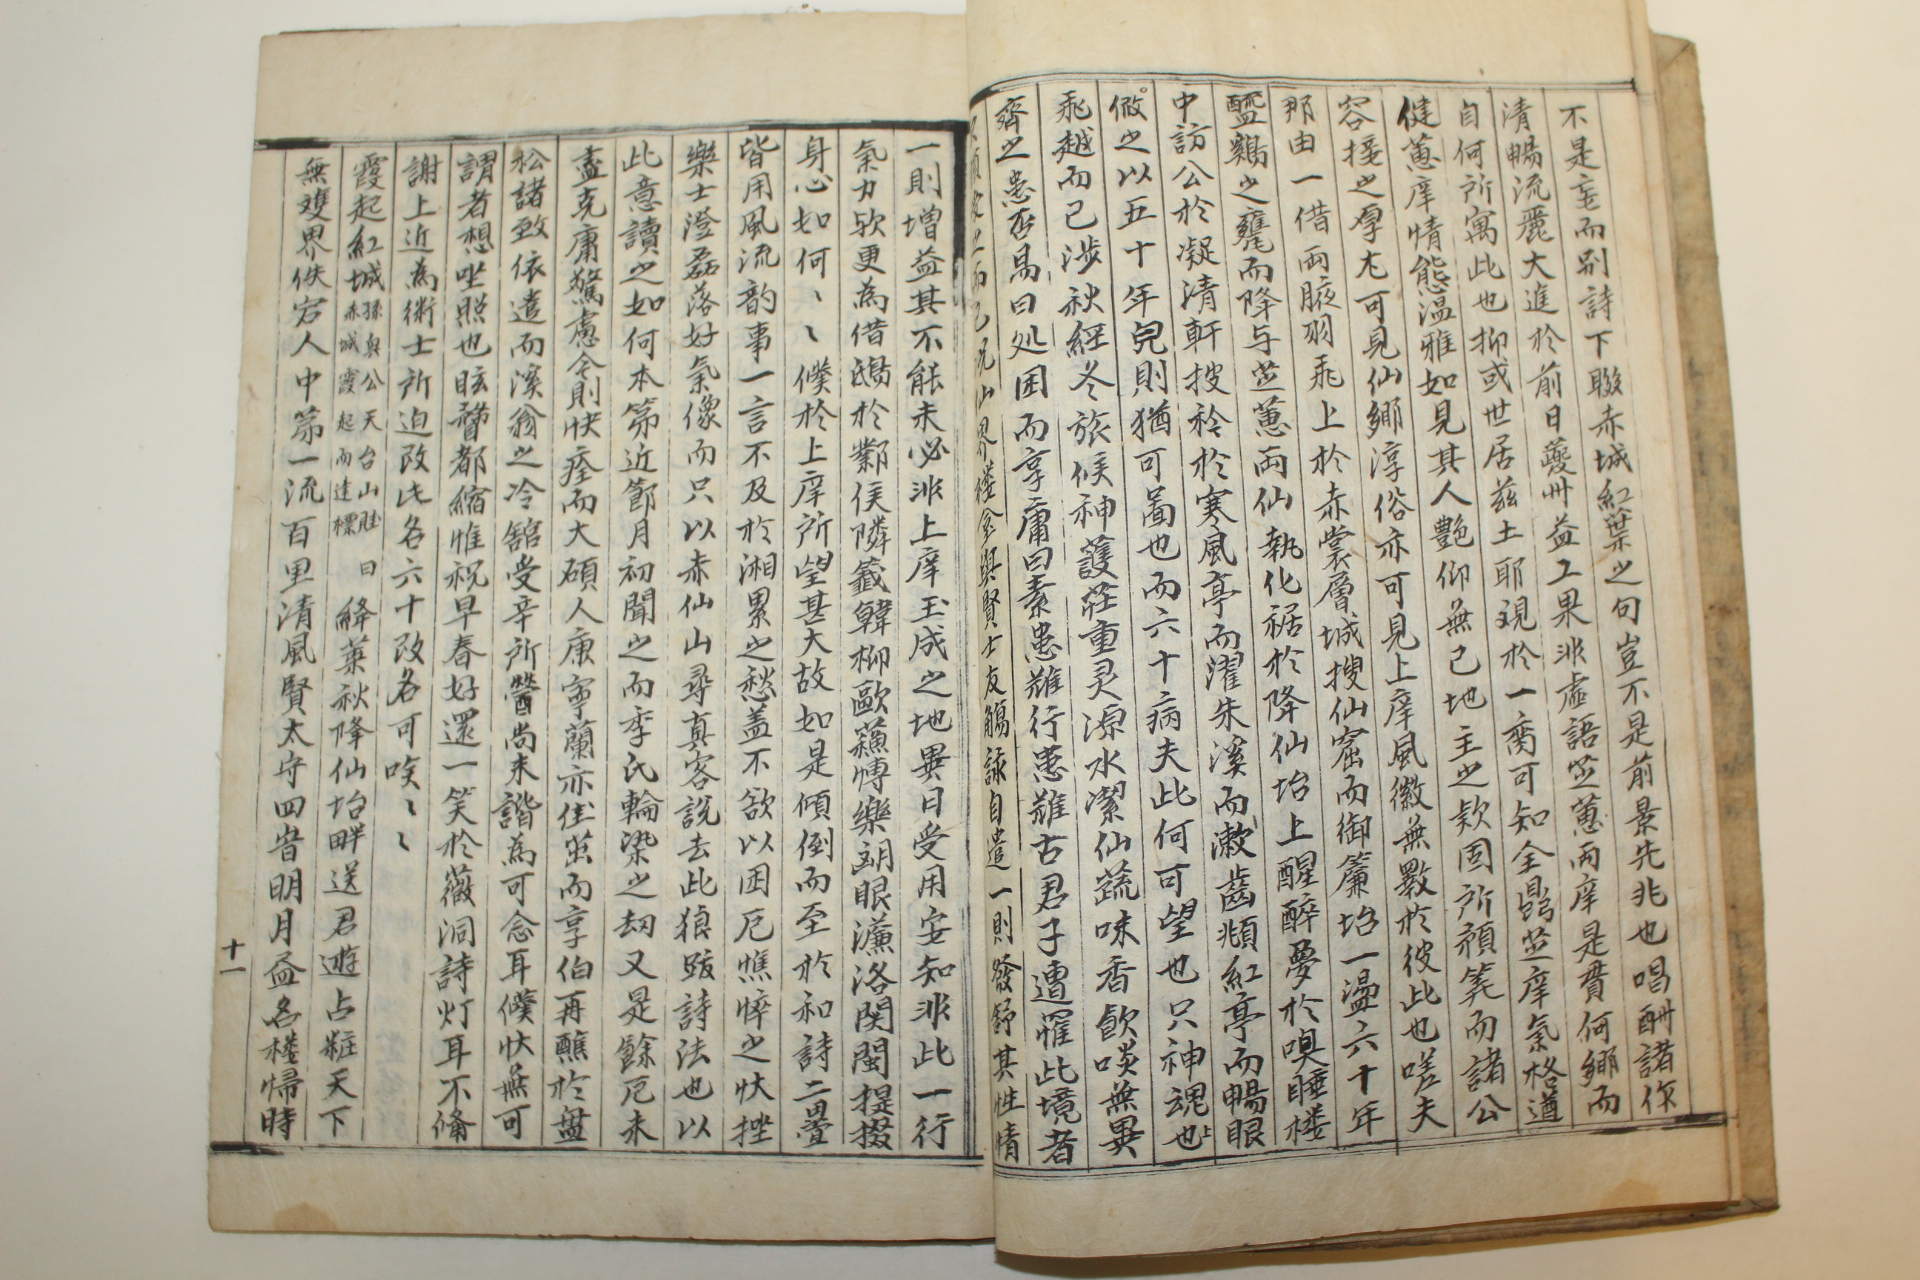 不是宔而别詩下聯赤城紅葉之句豈不是前景先兆也唱酬諸作
清暢流麗大進於前日夔州益工果非虛語芷蕙兩庠是賚何鄉而
自何所寓此也抑或世居玆土耶覌於一臠可知全鼎芷庠氣格遒
健蕙庠情態溫雅如見其人艶仰無已地主之欵固所預筭而諸公
容接之厚尤可見仙鄉淳俗亦可見上庠風徽無斁於彼此也嗟夫
那由一借両腋羽乖上於赤裳層城搜仙窟而御簾坮一盪六十年
醯鷄之甕而降与芷蕙両仙執化裾於降仙坮上醒醉夢於嗅睡楼
中訪公於凝清軒披衿於寒風亭而濯朱溪而漱齒頫紅亭而暢眼
倣之以五十年皃則猶可啚也而六十病夫此何可望也只神魂也
乖越而已涉秋経冬旅候神護莊重灵源水潔仙蔬味香飮啖無異
齊之患否易曰処困而亨庸曰素患難行患難古君子遭罹此境者
而已況仙界楼金與賢士友觴詠自遣一則發舒其性情
一則增益其不能未必非上庠玉成之地異日受用安知非此一行
氣力欤更爲借鴟於鄴侯隣籤韓柳歐蘓博樂翊眼濂洛関閩提掇
身心如何丶丶僕於上庠所望甚大故如是傾倒而至於和詩二疊
皆用風流韵事一言不及於湘累之愁盖不欲以困厄憔悴之忕挫
樂士澄磊落好氣像而只以赤仙山尋真客說去此狼跋詩法也以
此意讀之如何本第近節月初聞之而季氏輪染之刼又是餘厄未
盡克庸驚慮今則快痊而大碩人康寧蘭亦佳茁而享伯再醮於盤
松諸致依遣而溪翁之冷舘受辛所嘗尚未諧爲可念耳僕伏無可
謂者想坐照也眩瞀都縮惟祝早春好還一笑於薇洞詩灯耳不脩
謝上近爲術士所迫改此名六十改名可唉丶丶
霞起紅城孫興公天台山賦赤城霞起而建標曰絳葉秋降仙坮畔送君遊占粧天下
無雙界佚宕人中第一流百里清風賢太守四時明月孟名楼帰時
十一